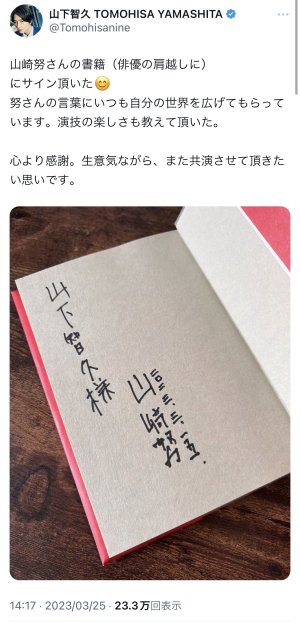 山下智久 TOMOHISA YAMASHITA
@Tomohisanine
山﨑努さんの書籍（俳優の肩越しに）
にサイン頂いた😊
努さんの言葉にいつも自分の世界を広げてもらって
います。演技の楽しさも教えて頂いた。
心より感謝。生意気ながら、また共演させて頂きた
い思いです。
山下智久様
山﨑努
14:17 · 2023/03/25 · 23.3万回表示